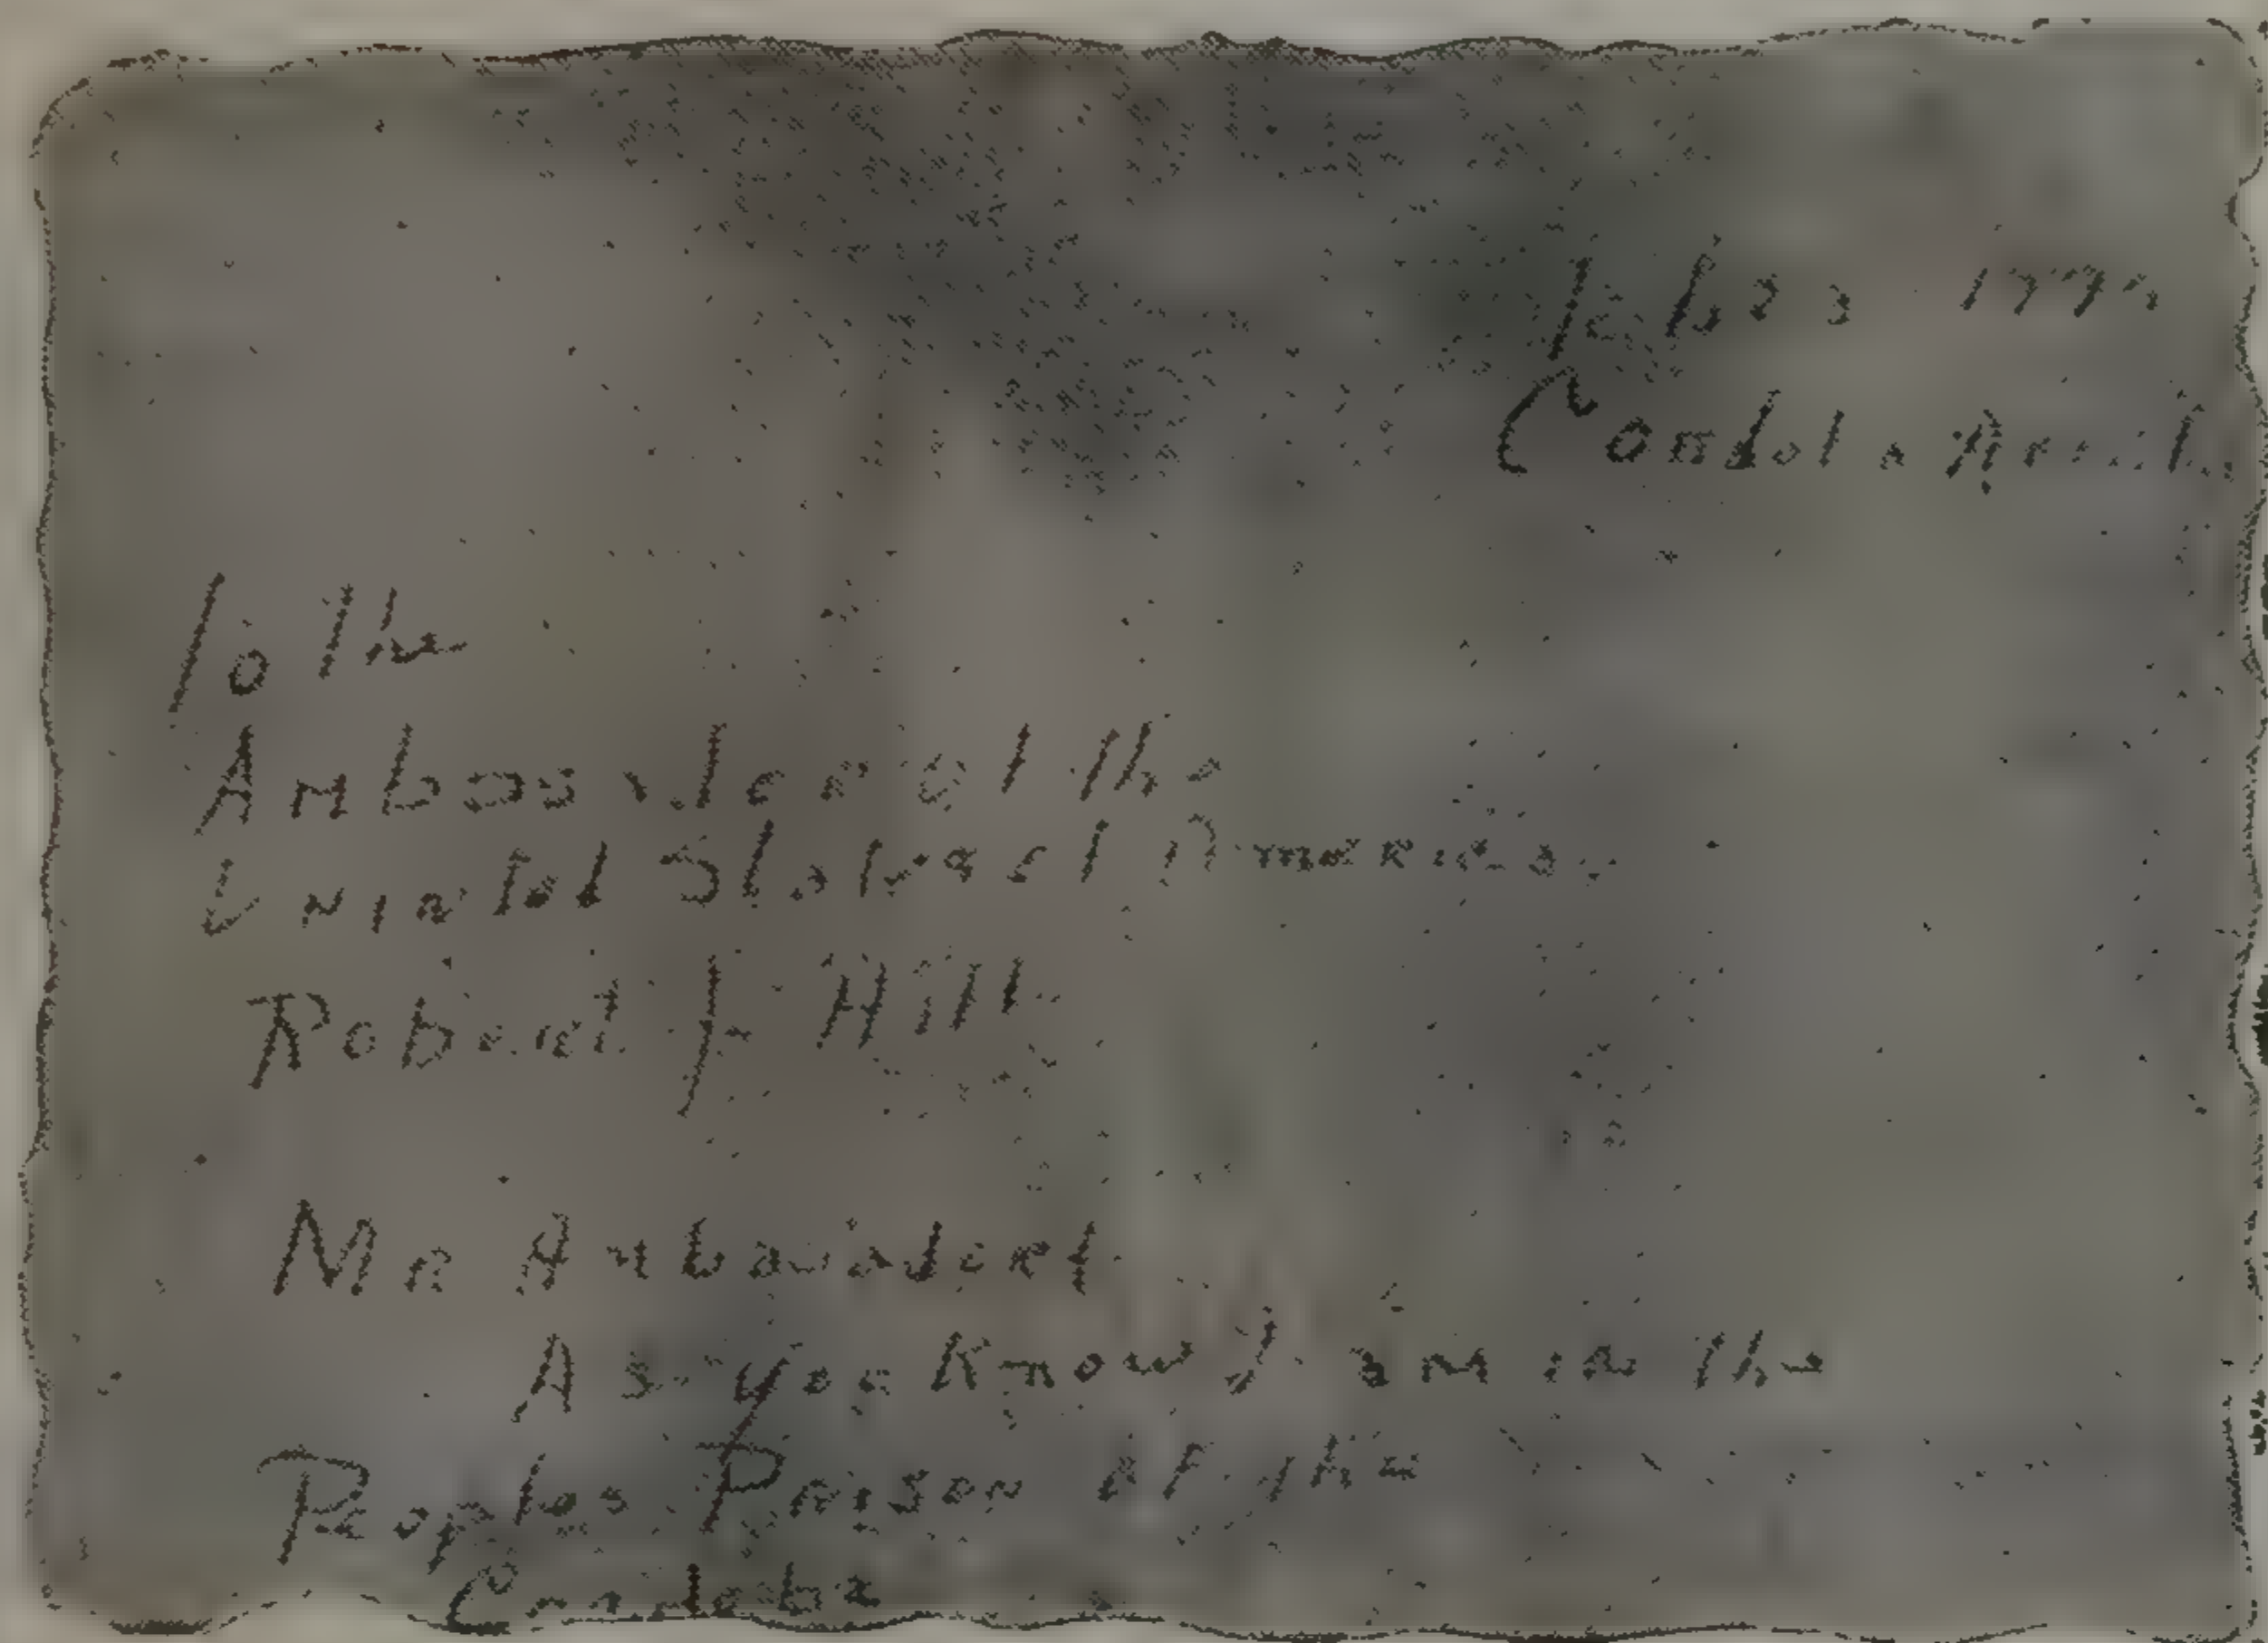 Feb 23 1977
To the
Ambassader of the
Uniated States of America
Robert F Hill
Mr Ambassader
As you know I am in the
Peoples Prison of the